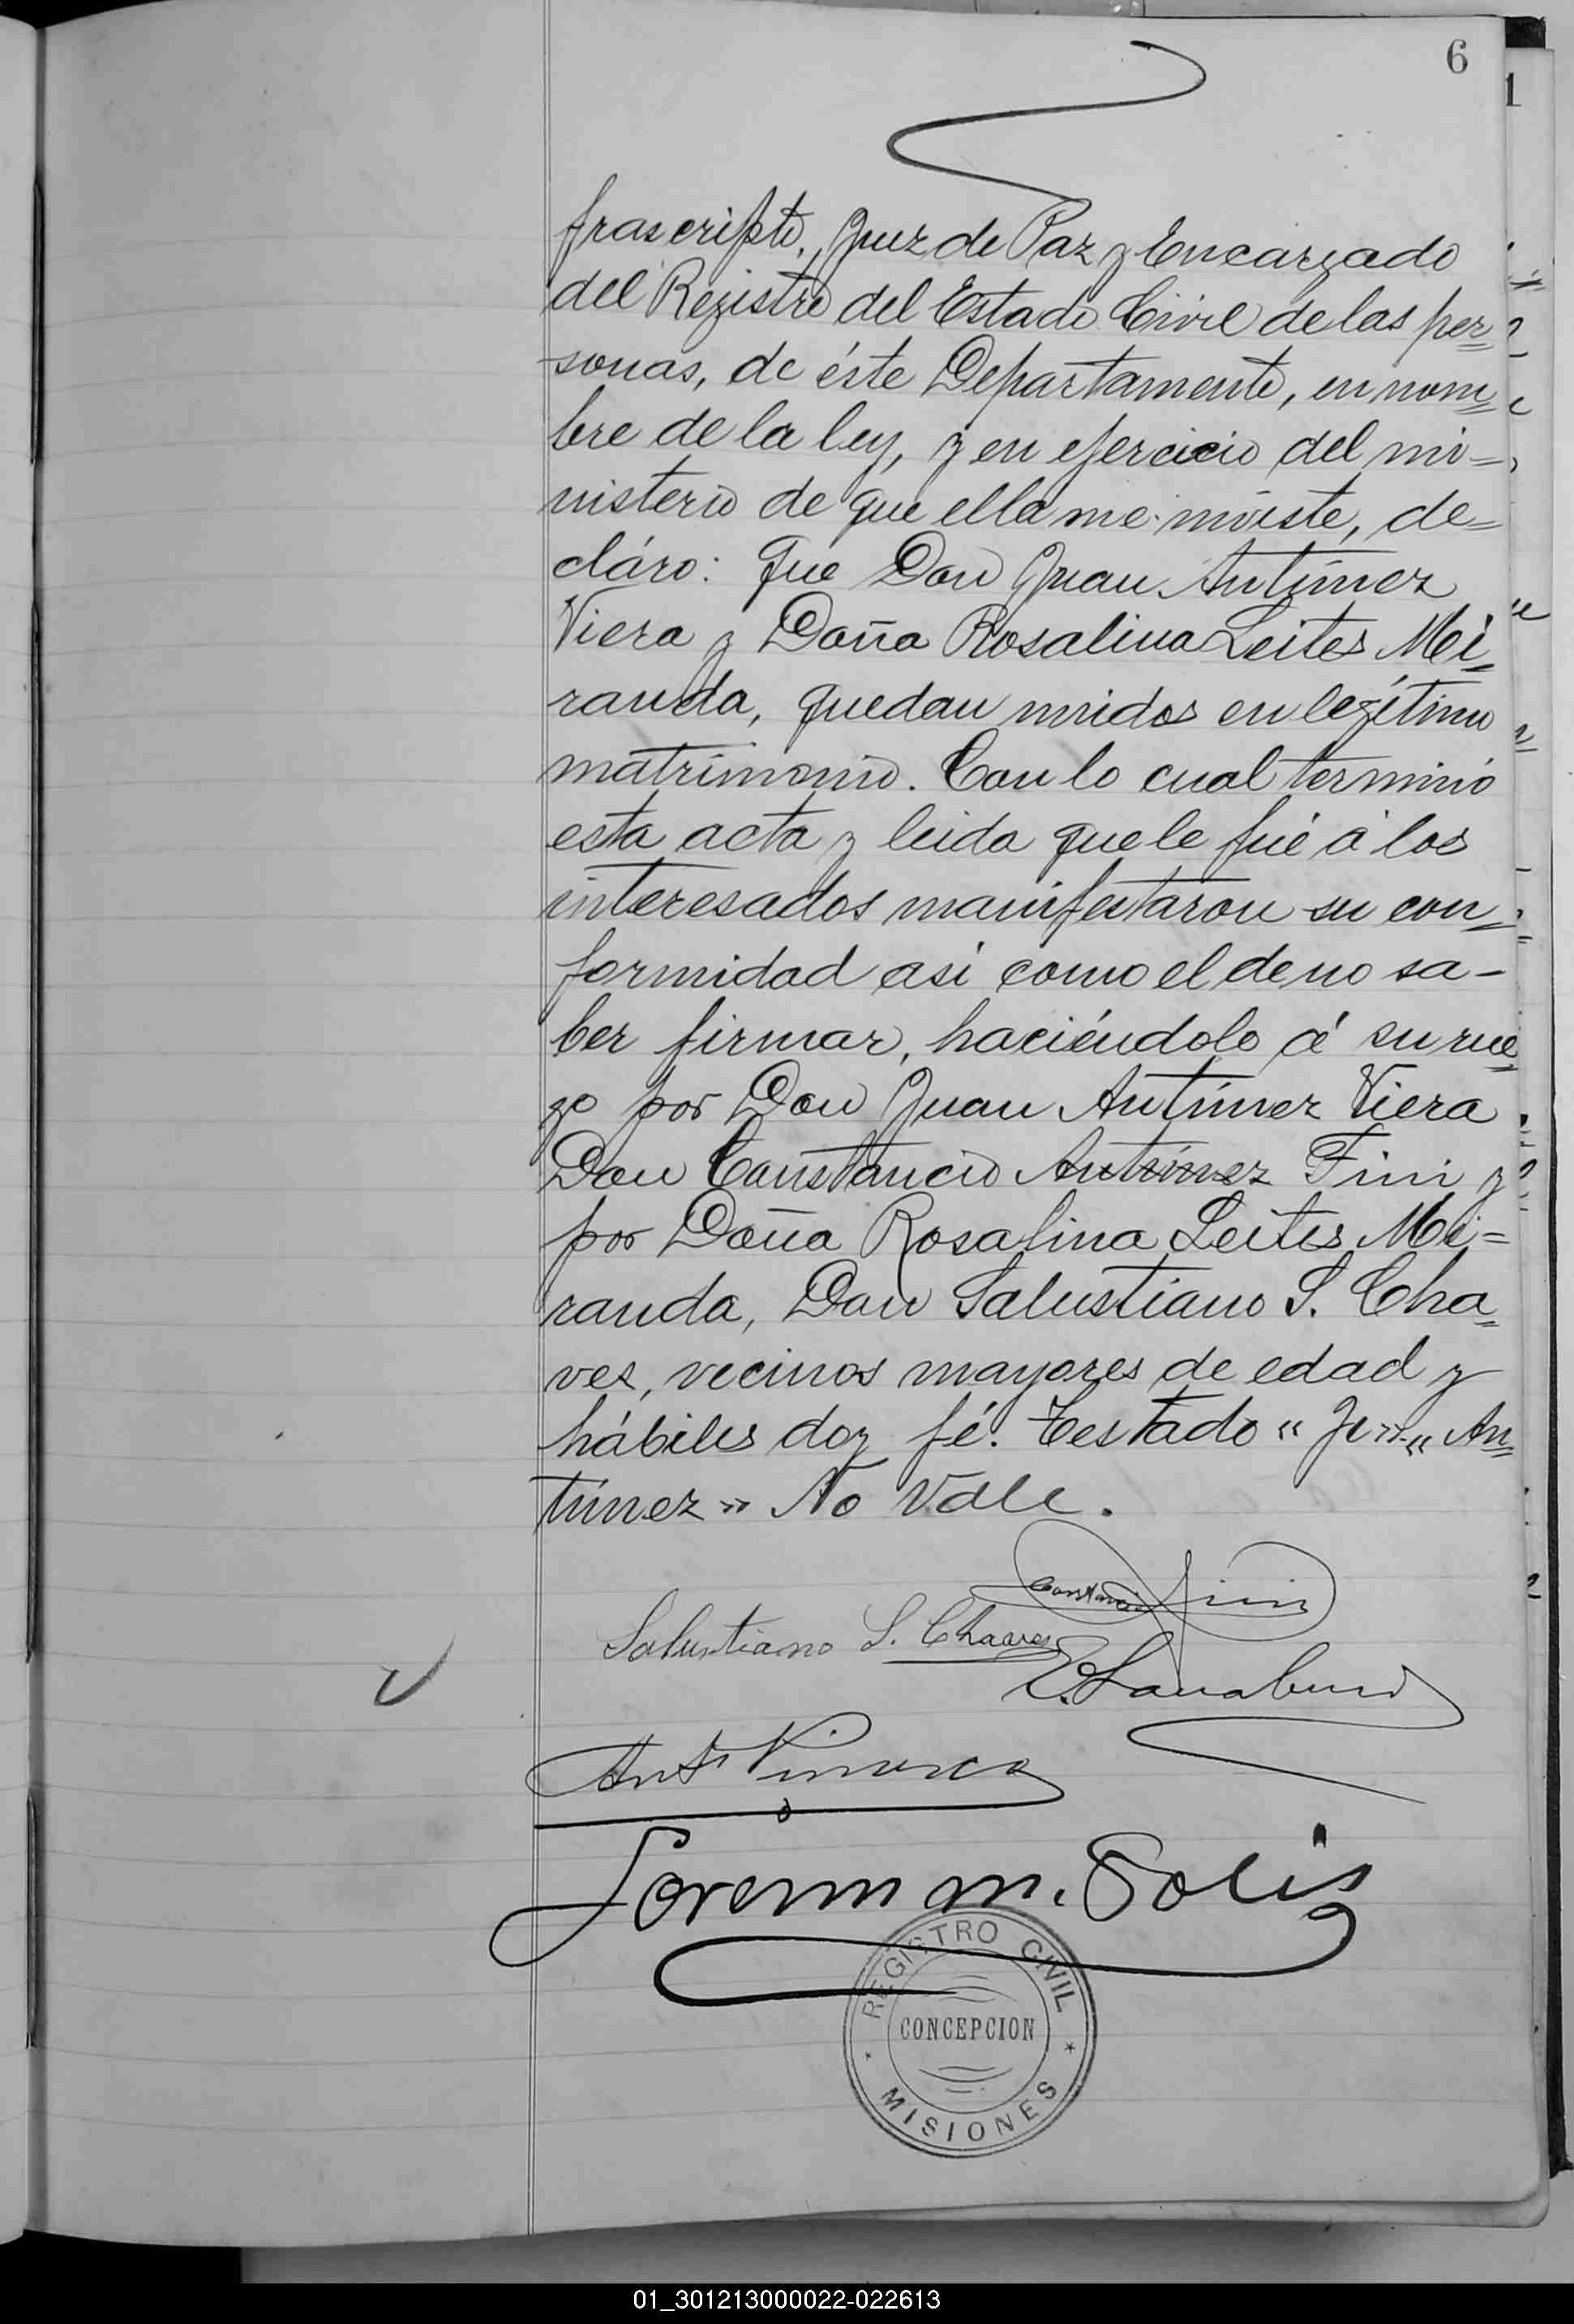 6
frascripto, Juez de Paz y Encargado
del Registro del Estado Civil de las per=
sonas, de éste Departamento, en nom=
bre de la ley, y en ejercicio del mi=
nisterio de que ella me inviste, de=
cláro: Que Don Juan Antúnez
Viera y Doña Rosalina Leites Mi=
randa, quedan unidos en legítimo
matrimonio. Con lo cual terminó
esta acta y leida que le fué á los
interesados manifestaron su con=
formidad asi como el de no sa-
ber firmar, haciéndolo á su rue=
go por Don Juan Antúnez Viera
Don Constancio Antúnez Fini y
por Doña Rosalina Leites Mi=
randa, Don Salustiano S. Cha=
ves, vecinos mayores de edad y
hábiles doy fé. Testado « Ju » « An=
túnez » No Vale.
Constancio Fini
Salustiano S. Chaves
M. Solis
REGISTRO CIVIL
CONCEPCION
MISIONES
01_301213000022-022613